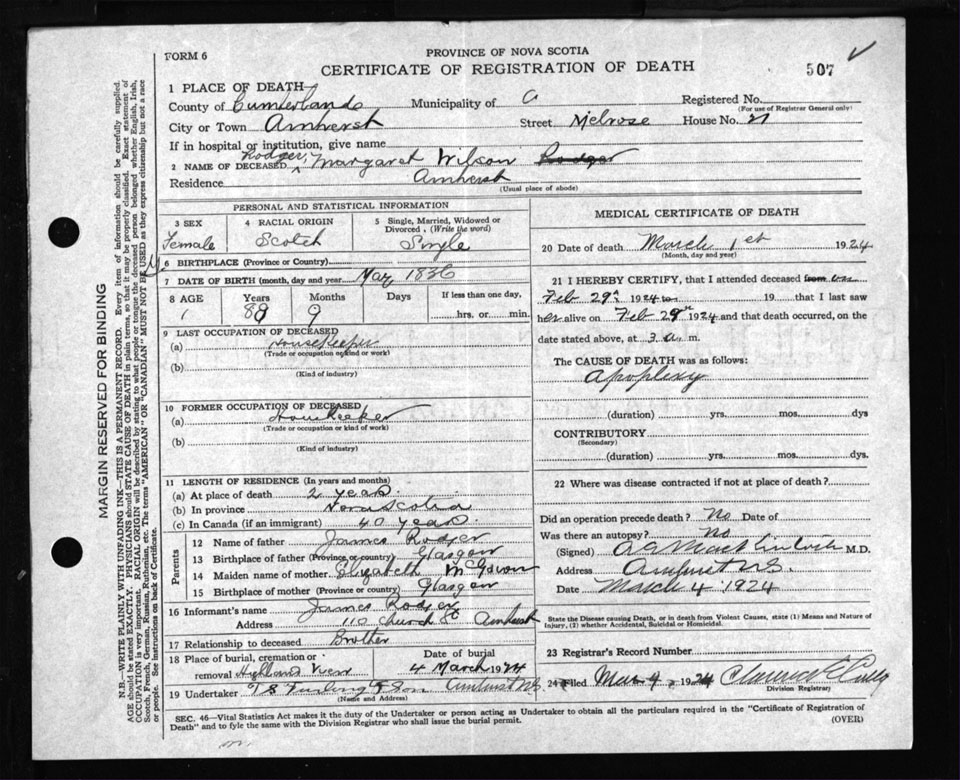 FORM 6
PROVINCE OF NOVA SCOTIA
CERTIFICATE OF REGISTRATION OF DEATH
507
1 PLACE OF DEATH
County of Cumberland Municipality of Registered No.
(For use of Registrar General only)
City or Town Amherst Street Melrose House No. 21
If in hospital or institution, give name
2 NAME OF DECEASED Rodger, Margaret Wilson Rodger
Residence Amherst
(Usual place of abode)
PERSONAL AND STATISTICAL INFORMATION
3 SEX
Female
4 RACIAL ORIGIN
Scotch
5 Single, Married, Widowed or Divorced, (Write the word)
Single
6 BIRTHPLACE (Province or Country)
7 DATE OF BIRTH (month, day and year) May 1836
8 AGE Years Months Days If less than one day,
9 hrs. or min.
9 LAST OCCUPATION OF DECEASED
(a) Housekeeper
(Trade or occupation or kind or work)
(b)
(Kind of industry)
10 FORMER OCCUPATION OF DECEASED
(a) Housekeeper
(Trade or occupation or kind of work)
(b)
(Kind of industry)
11 LENGTH OF RESIDENCE (In years and months)
(a) At place of death 2 years.
(b) In province Nova Scotia
(c) In Canada (if an immigrant) 40 years.
Parents
12 Name of father James Rodger
13 Birthplace of father (Province or country) Glasgow
14 Maiden name of mother Elizabeth McGowan
15 Birthplace of mother (Province or country) Glasgow
16 Informant's name James Rodger
Address 110 Church St Amherst
17 Relationship to deceased Brother
18 Place of burial, cremation or removal Highland View
Date of burial
4 March 1924
19 Undertaker & Son Amherst N.S.
(Name and Address)
MEDICAL CERTIFICATE OF DEATH
20 Date of death March 1st 1924
(Month, day and year)
21 I HEREBY CERTIFY, that I attended deceased from on
Feb 29th 1924 to 19 that I last saw
her alive on Feb 29th 1924 and that death occurred, on
date stated above, at 3 a. m.
The CAUSE OF DEATH was as follows:
Apoplexy
(duration) yrs. mos. dys
CONTRIBUTORY
(Secondary)
(duration) yrs. mos. dys.
22 Where was disease contracted if not at place of death?
Did an operation precede death? No Date of
Was there an autopsy? No
(Signed) M.D.
Address Amherst N.S.
Date March 4 1924
State the Disease causing Death, or in death from Violent Causes, state (1) Means and Nature of
Injury, (2) whether Accidental, Suicidal or Homicidal.
23 Registrar's Record Number
24 Filed Mar 4, 1924 Clarence
Division Registrar
SEC. 46—Vital Statistics Act makes it the duty of the Undertaker or person acting as Undertaker to obtain all the particulars required in the "Certificate of Registration of
Death" and to fyle the same with the Division Registrar who shall issue the burial permit.
(OVER)
MARGIN RESERVED FOR BINDING
N.B.—WRITE PLAINLY WITH UNFADING INK—THIS IS A PERMANENT RECORD. Every item of information should be carefully supplied.
AGE should be stated EXACTLY. PHYSICIANS should STATE CAUSE OF DEATH in plain terms, so that it may be properly classified. Exact statement of
OCCUPATION is very important. RACIAL ORIGIN will be described by stating to what people or tongue the deceased person belonged whether English, Irish,
Scotch, French, German, Russian, Ruthenian, etc. The terms "AMERICAN" or "CANADIAN" MUST NOT BE USED as they express citizenship but not a race
or people. See instructions on back of Certificate.